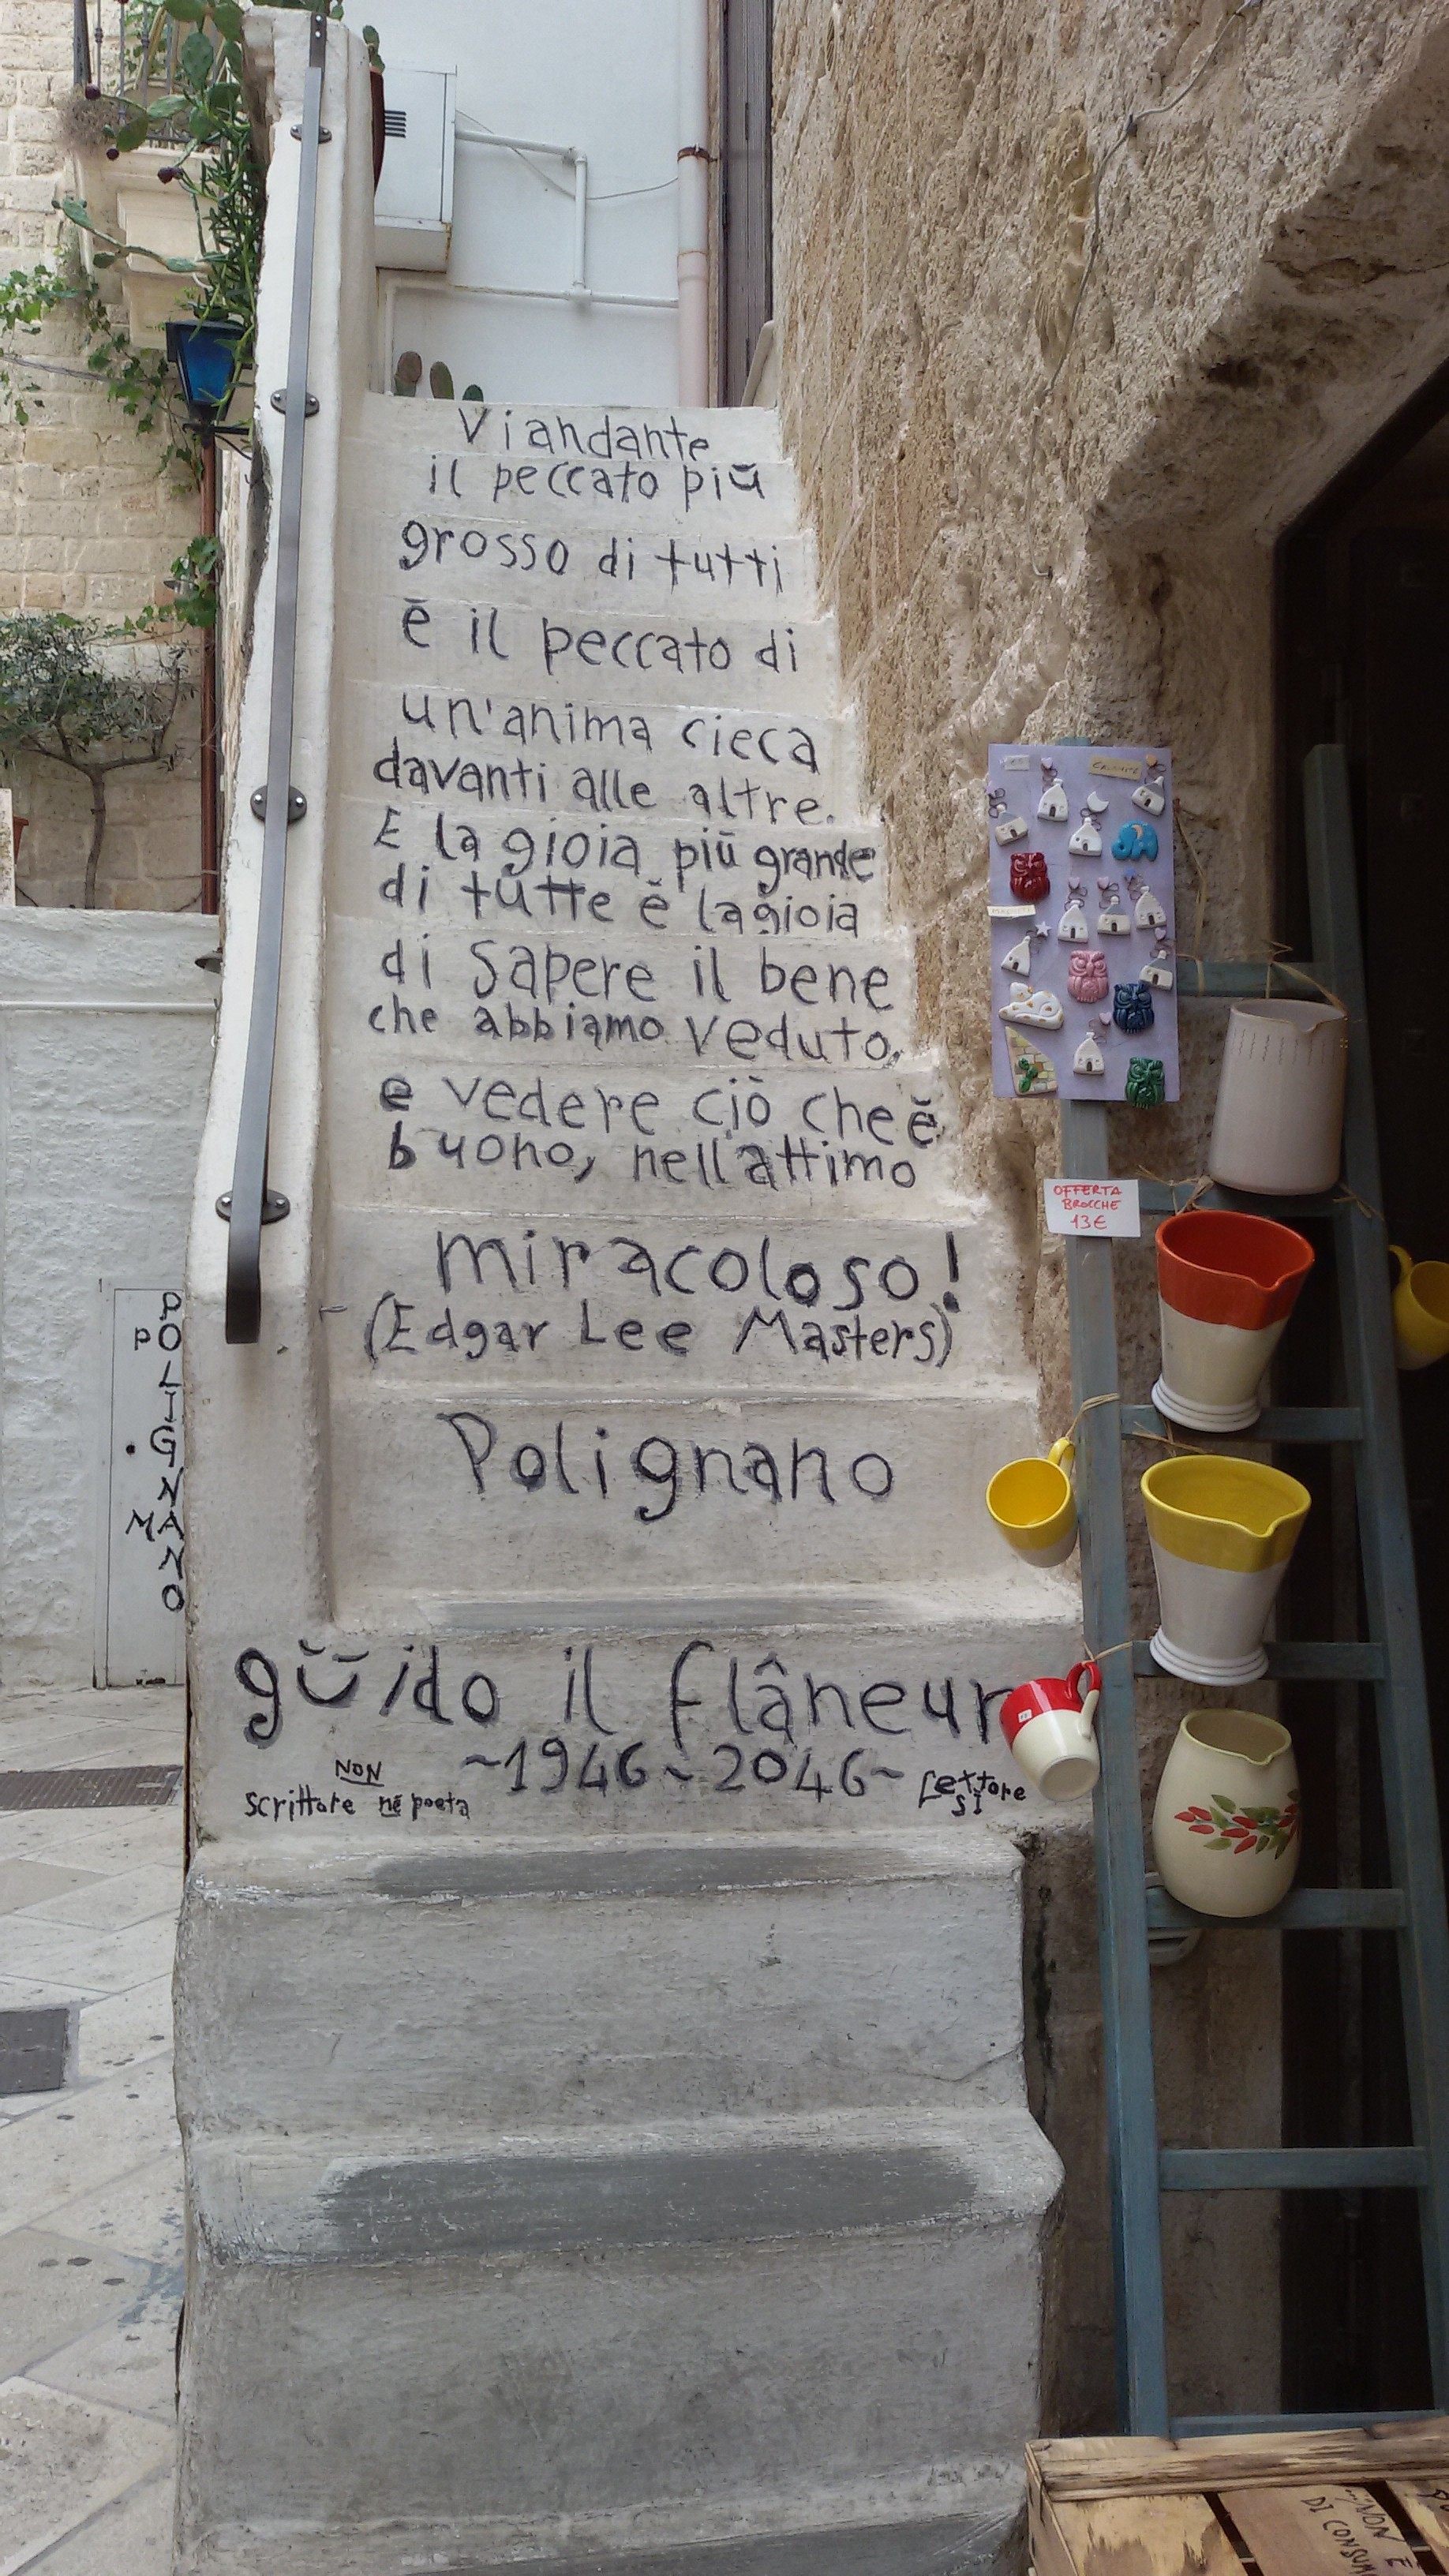 Viandante
il peccato più
grosso di tutti
è il peccato di
un'anima cieca
davanti alle altre.
E la gioia più grande
di tutte è la gioia
di sapere il bene
che abbiamo veduto,
e vedere ciò che è
buono, nell'attimo
miracoloso!
(Edgar Lee Masters)
Polignano
güido il flâneur
~1946~2046~
NON
scrittore né poeta
Lettore
sì
POLIGNANO
P
M
OFFERTA
BROCCHE
13€
"NON È
DI CONSUM